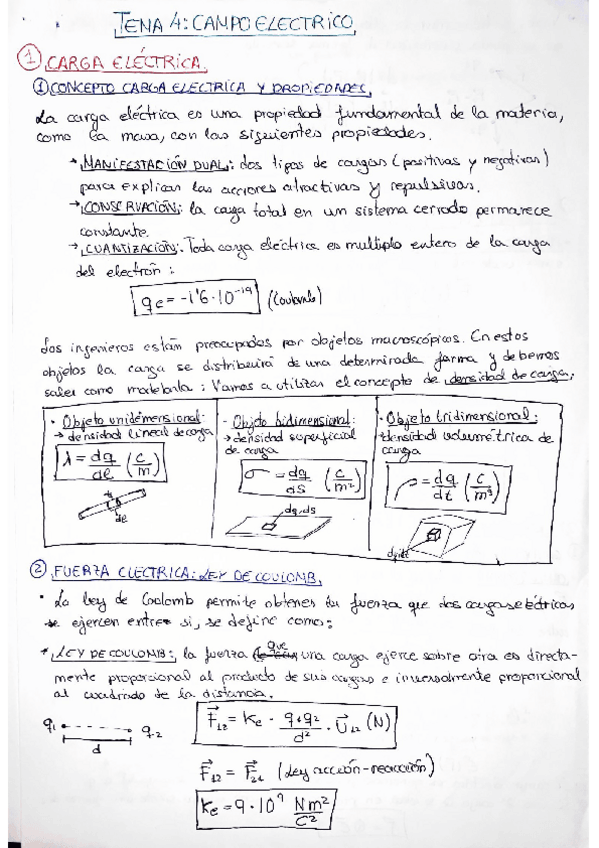 TEMA 4: CAMPO ELECTRICO
1 CARGA ELÉCTRICA
1 CONCEPTO CARGA ELECTRICA Y PROPIEDADES
La carga eléctrica es una propiedad fundamental de la materia,
como la masa, con las siguientes propiedades.
→ MANIFESTACIÓN DUAL: dos tipos de cargas (positivas y negativas)
para explicar las acciones atractivas y repulsivas.
→ CONSERVACIÓN: la carga total en un sistema cerrado permanece
constante.
→ CUANTIZACIÓN: Toda carga eléctrica es multiplo entero de la carga
del electrón:
qe = -1'6·10⁻¹⁹ (Coulombs)
Los ingenieros están preocupados por objetos macroscópicos. En estos
objetos la carga se distribuirá de una determinada forma y debemos
saber como modelarla: Vamos a utilizar el concepto de densidad de carga:
· Objeto unidimensional:
→ densidad lineal de carga
λ = dq/dl (C/m)
dl
- Objeto bidimensional:
→ densidad superficial
de carga
σ = dq/ds (C/m²)
dq, ds
· Objeto tridimensional:
densidad volumétrica de
carga
ρ = dq/dt (C/m³)
2 FUERZA ELECTRICA: LEY DE COULOMB
· La ley de Coolomb permite obtener la fuerza que dos cargas eléctricas
se ejercen entre si, se define como:
LEY DE COULOMB: la fuerza que una carga ejerce sobre otra es directa-
mente proporcional al producto de sus cargas e inversalmente proporcional
al cuadrado de la distancia.
q1 q2
d
F⃗12 = Ke · q1q2/d² · U⃗12 (N)
F⃗12 = F⃗21 (Ley acción-reacción)
Ke = 9·10⁹ Nm²/C²